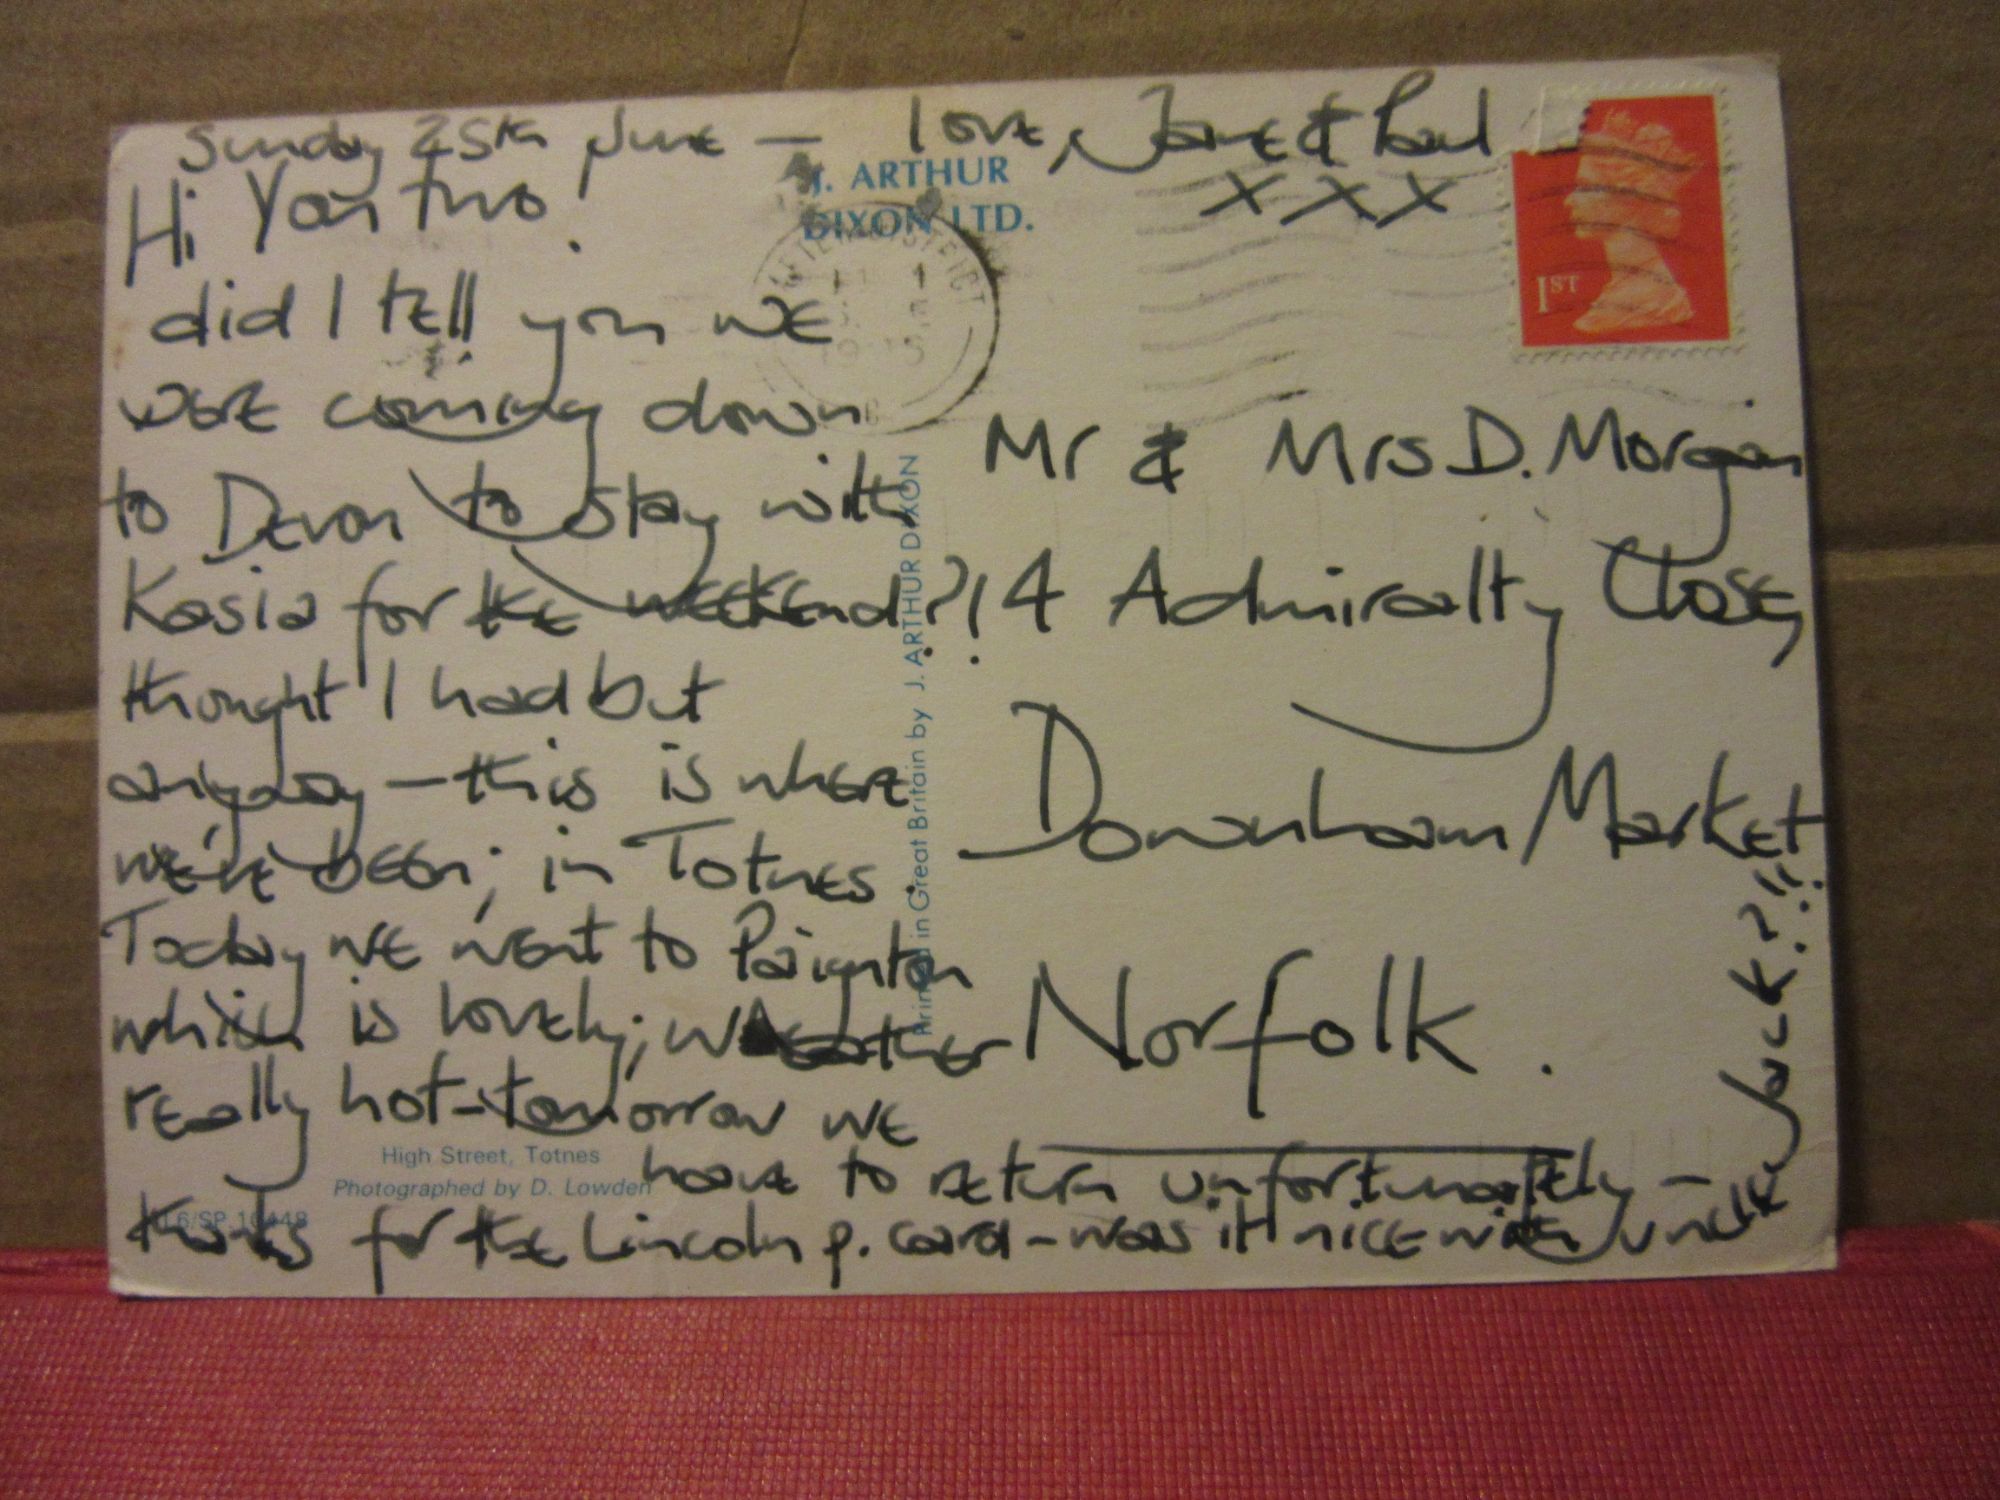 Sunday 25th June — love, Jane & Paul
x x x
Hi You two!
did I tell you we
were coming down
to Devon to stay with
Kasia for the weekend?!
thought I had but
anyway – this is where
we've been; in Totnes.
Today we went to Paignton
which is lovely; weather
really hot – tomorrow we
have to return unfortunately –
thanks for the Lincoln p. card – was it nice with uncle
Jack?!!
J. ARTHUR
DIXON LTD.
DISTRICT
1ST
Mr & Mrs D. Morgan
4 Admiralty Close,
Downham Market
Norfolk.
Printed in Great Britain by J. ARTHUR DIXON
High Street, Totnes
Photographed by D. Lowden